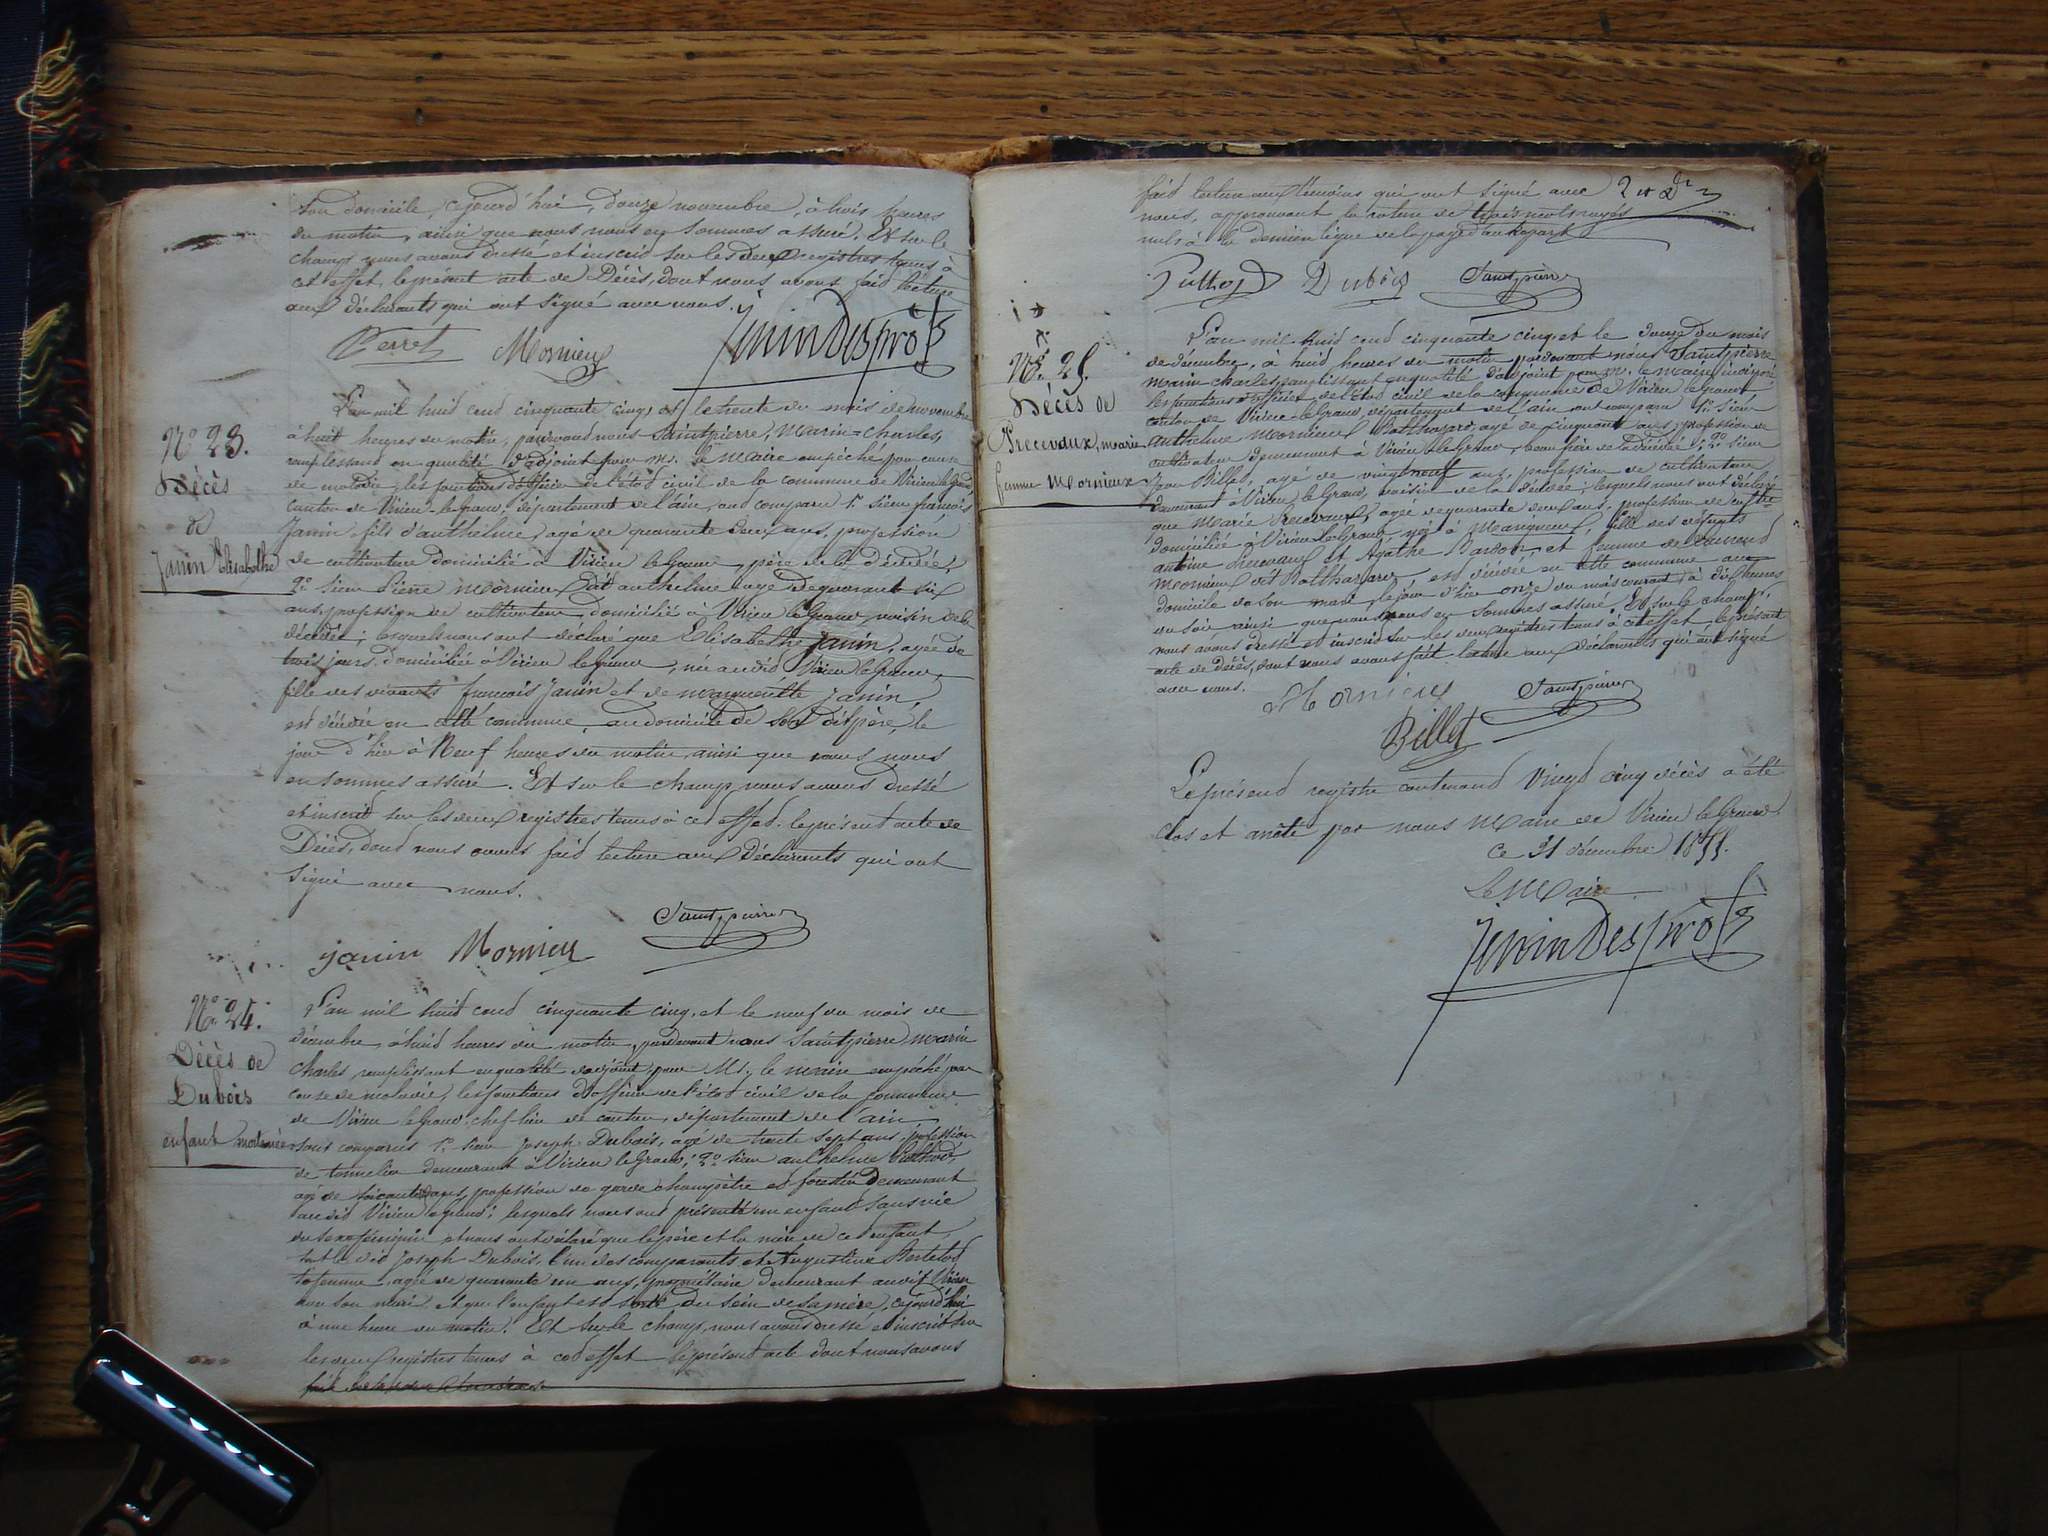 son domicile, cejourd'hui, douze novembre, à trois heures
du matin, ainsi que nous nous en sommes assuré. Et sur le
champ nous avons dressé et inscrit sur les deux registres tenus à
cet effet, le présent acte de Décès, dont nous avons fait lecture
aux déclarants qui ont signé avec nous.
Perret Mornieux Jenin Desprots
N° 23.
Décès
de
Janin Elisabethe
L'an mil huit cent cinquante cinq, et le trente du mois de novembre
à huit heures du matin, pardevant nous Saintpierre, Marin=Charles,
remplissant en qualité d'adjoint pour Mr. le Maire empêché pour cause
de maladie, les fonctions d'officier de l'état civil de la commune de Virieu le grand,
canton de Virieu-le-grand, département de l'ain, ont comparu 1° sieur francois
Janin, fils d'anthelme, agé de quarante deux ans, profession
de cultivateur domicilié à Virieu le Grand, père de la décédée,
2° sieur Pierre Mornieux dit anthelme agé de quarante six
ans, profession de cultivateur, domicilié à Virieu le Grand, voisin de la
décédée; lesquels nous ont déclaré que Elisabethe Janin, agée de
trois jours, domiciliée à Virieu le Grand, née audit Virieu le Grand,
fille des vivants francois Janin et de Marguerite Janin,
est décédée en cette commune, au domicile de son dit père, le
jour d'hier à Neuf heures du matin, ainsi que nous nous
en sommes assuré. Et sur le champ nous avons dressé
et inscrit sur les deux registres tenus à cet effet, le présent acte de
Décès, dont nous avons fait lecture aux Déclarants qui ont
signé avec nous.
janin Mornieu Saintpierre
N° 24.
Décès de
Dubois
enfant mort-né
L'an mil huit cent cinquante cinq, et le neuf du mois de
décembre, à huit heures du matin, pardevant nous Saintpierre Marin
Charles remplissant en qualité d'adjoint, pour Mr. le maire empêché pour
cause de maladie, les fonctions d'officier de l'état civil de la commune
de Virieu le Grand, chef-lieu de canton, département de l'ain
sont comparus 1° sieur Joseph Dubois, agé de trente sept ans, profession
de tonnelier demeurant à Virieu le Grand; 2° sieur anthelme
agé de soixante ans, profession de garde champêtre et forestier demeurant
audit Virieu le grand; lesquels nous ont présenté un enfant sans vie
du sexe féminin et nous ont déclaré que le père et la mère de cet enfant,
sont le dit Joseph Dubois, l'un des comparants, et Augustine Bertelod
sa femme, agée de quarante un ans, propriétaire demeurant audit Virieu
avec son mari, et que l'enfant est sorti du sein de sa mère, cejourd'hui
à une heure du matin. Et sur le champ, nous avons dressé et inscrit sur
les deux registres tenus à cet effet le présent acte dont nous avons
fait lecture aux témoins qui ont signé avec
nous, approuvant la rature de trois mots rayés
nuls à la dernière ligne de la page d'autre part
Dubois Saintpierre
N°. 25.
Décès de
Precevaux, marie
femme Mornieux
L'an mil huit cent cinquante cinq, et le douze du mois
de décembre, à huit heures du matin, pardevant nous Saintpierre
Marin Charles, remplissant en qualité d'adjoint pour Mr. le Maire, indisposé
les fonctions d'officier de l'état civil de la commune de Virieu le grand
canton de Virieu-le Grand, département de l'ain, ont comparu 1° sieur
anthelme Mornieux agé de cinquante ans, profession de
cultivateur demeurant à Virieu le Grand, beau frère de la décédée; 2° sieur
Jean Billet, agé de vingt neuf ans, profession de cultivateur
demeurant à Virieu le Grand, voisin de la décédée; lesquels nous ont déclaré
que Marie Precevaux, agée de quarante deux ans, profession de
domiciliée à Virieu le Grand, née à Marignieux, fille des défunts
antoine Precevaux et Agathe Bardon et femme de
Mornieux dit est décédée en cette commune au
domicile de son mari, le jour d'hier onze du mois courant, à dix heures
du soir ainsi que nous nous en sommes assuré. Et sur le champ,
nous avons dressé et inscrit sur les deux registres tenus à cet effet, le présent
acte de décès, dont nous avons fait lecture aux déclarants, qui ont signé
avec nous.
Mornieux Saintpierre
Billet
Le présent registre contenant vingt cinq décès a été
clos et arrêté par nous Maire de Virieu le Grand
ce 31 décembre 1855.
Le Maire
Jenin Desprots